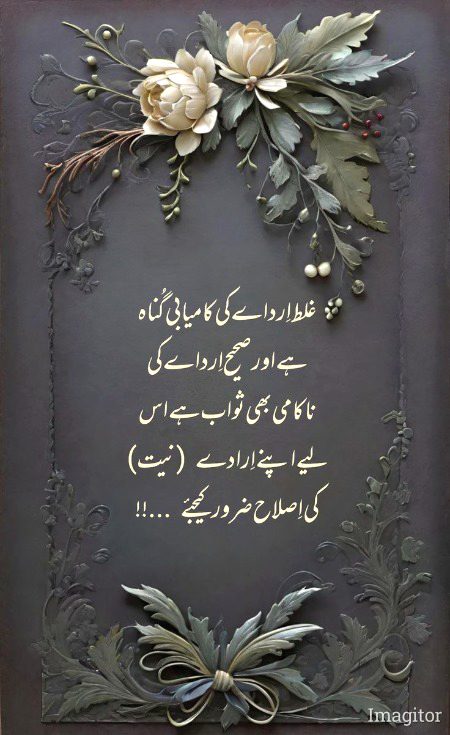 غلط اِرداے کی کامیابی گُناہ
ہے اور صحیح اِرداے کی
ناکامی بھی ثواب ہے اس
لیے اپنے اِرادے (نیت)
کی اِصلاح ضرور کیجئے ...!!
Imagitor